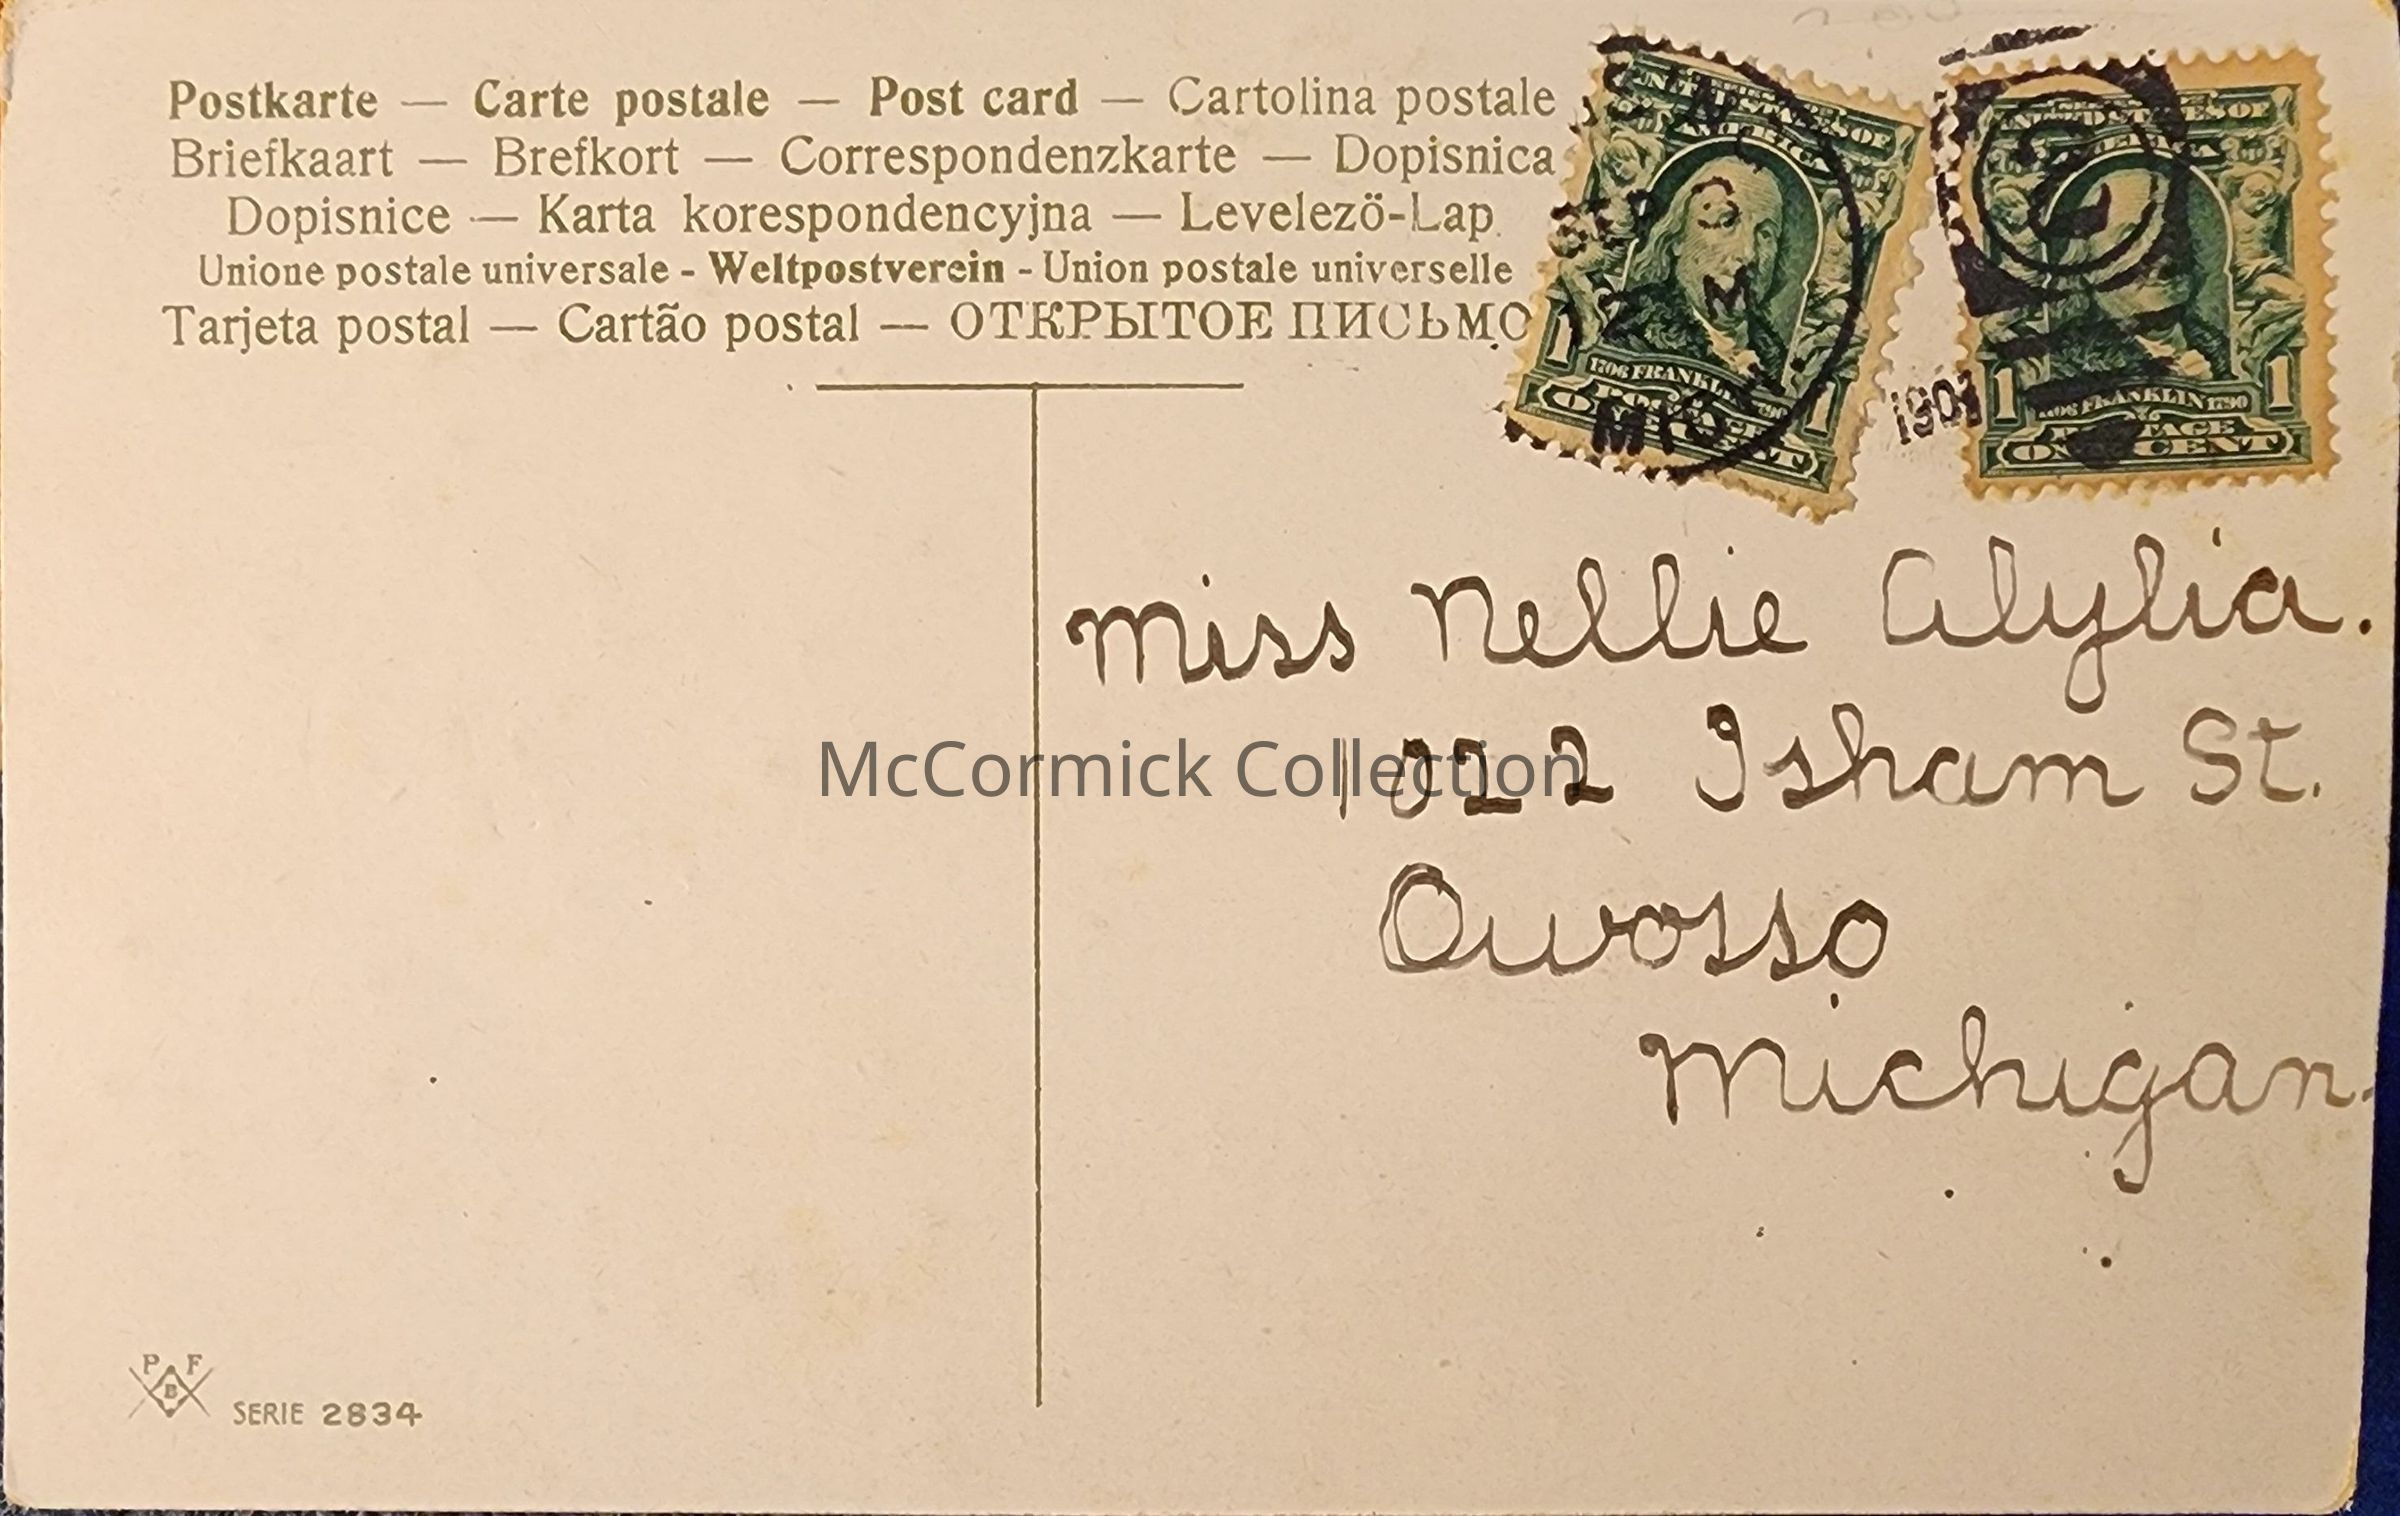 Postkarte — Carte postale — Post card — Cartolina postale
Briefkaart — Brefkort — Correspondenzkarte — Dopisnica
Dopisnice — Karta korespondencyjna — Levelezö-Lap.
Unione postale universale - Weltpostverein - Union postale universelle
Tarjeta postal — Cartão postal — ОТКРЫТОЕ ПИСЬМО
UNITED STATES OF
AMERICA
SEP 8
12 M
1 1706 FRANKLIN 1790 1
POSTAGE
ONE CENT
MICH
1907
2
UNITED STATES OF
AMERICA
1 1706 FRANKLIN 1790 1
POSTAGE
ONE CENT
Miss Nellie Alylia.
1022 Isham St.
Owosso
Michigan.
McCormick Collection
P F
B
SERIE 2834